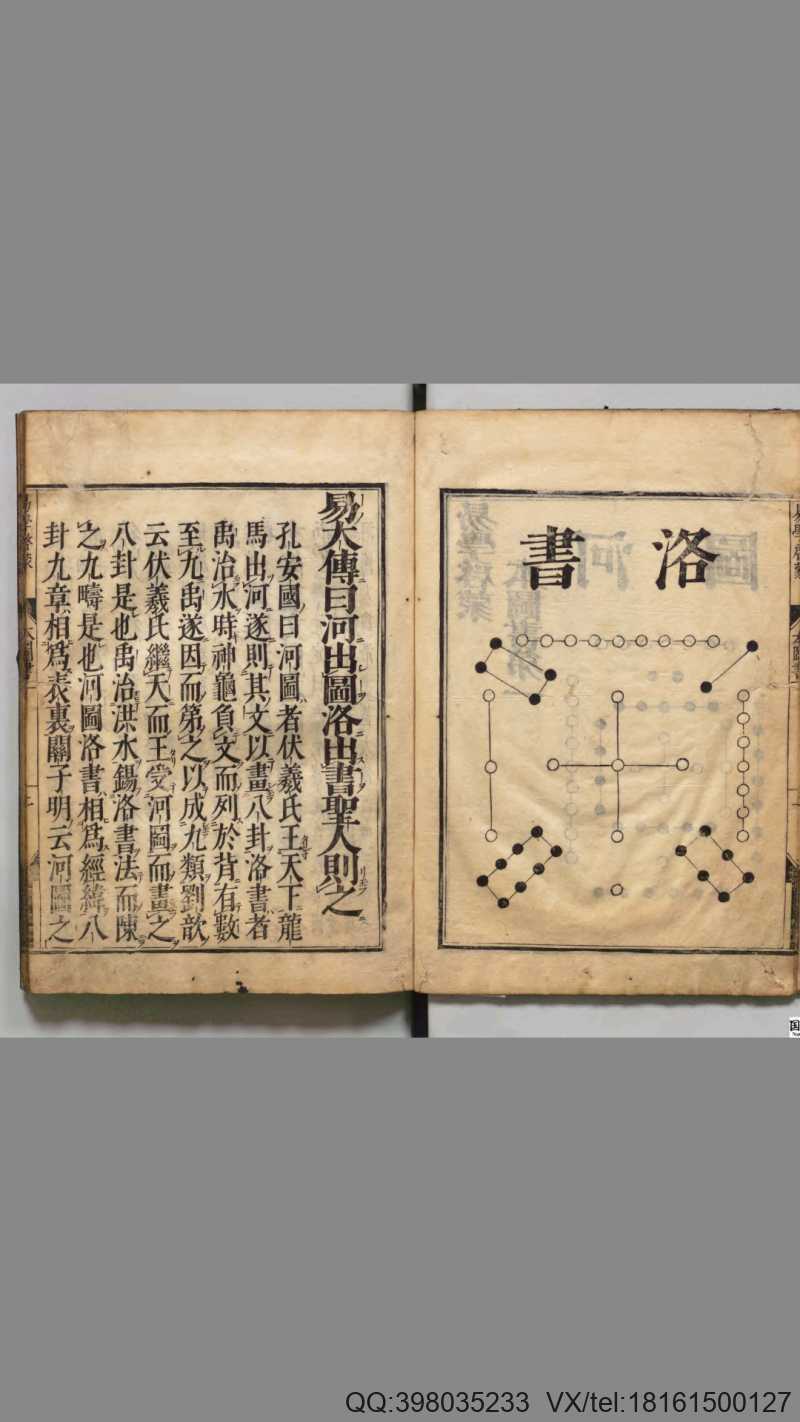 洛書
易大傳曰河出圖洛出書聖人則之
孔安國曰河圖者伏羲氏王天下龍
馬出河遂則其文以畫八卦洛書者
禹治水時神龜負文而列於背有數
至九禹遂因而第之以成九類劉歆
云伏羲氏繼天而王受河圖而畫之
八卦是也禹治洪水錫洛書法而陳
之九疇是也河圖洛書相爲經緯八
卦九章相爲表裏關子明云河圖之
QQ:398035233 VX/tel:18161500127